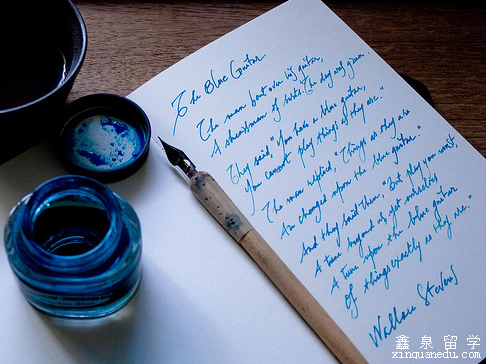 The Blue Guitar
The man bent over his guitar,
A shearsman of sorts. The day was green.
They said, "You have a blue guitar,
You cannot play things as they are."
The man replied, "Things as they are
Are changed upon the blue guitar."
And they said then, "But play you must,
A tune beyond us, yet ourselves
A tune upon the blue guitar
Of things exactly as they are."
Wallace Stevens
鑫泉留学
xinquanedu.com